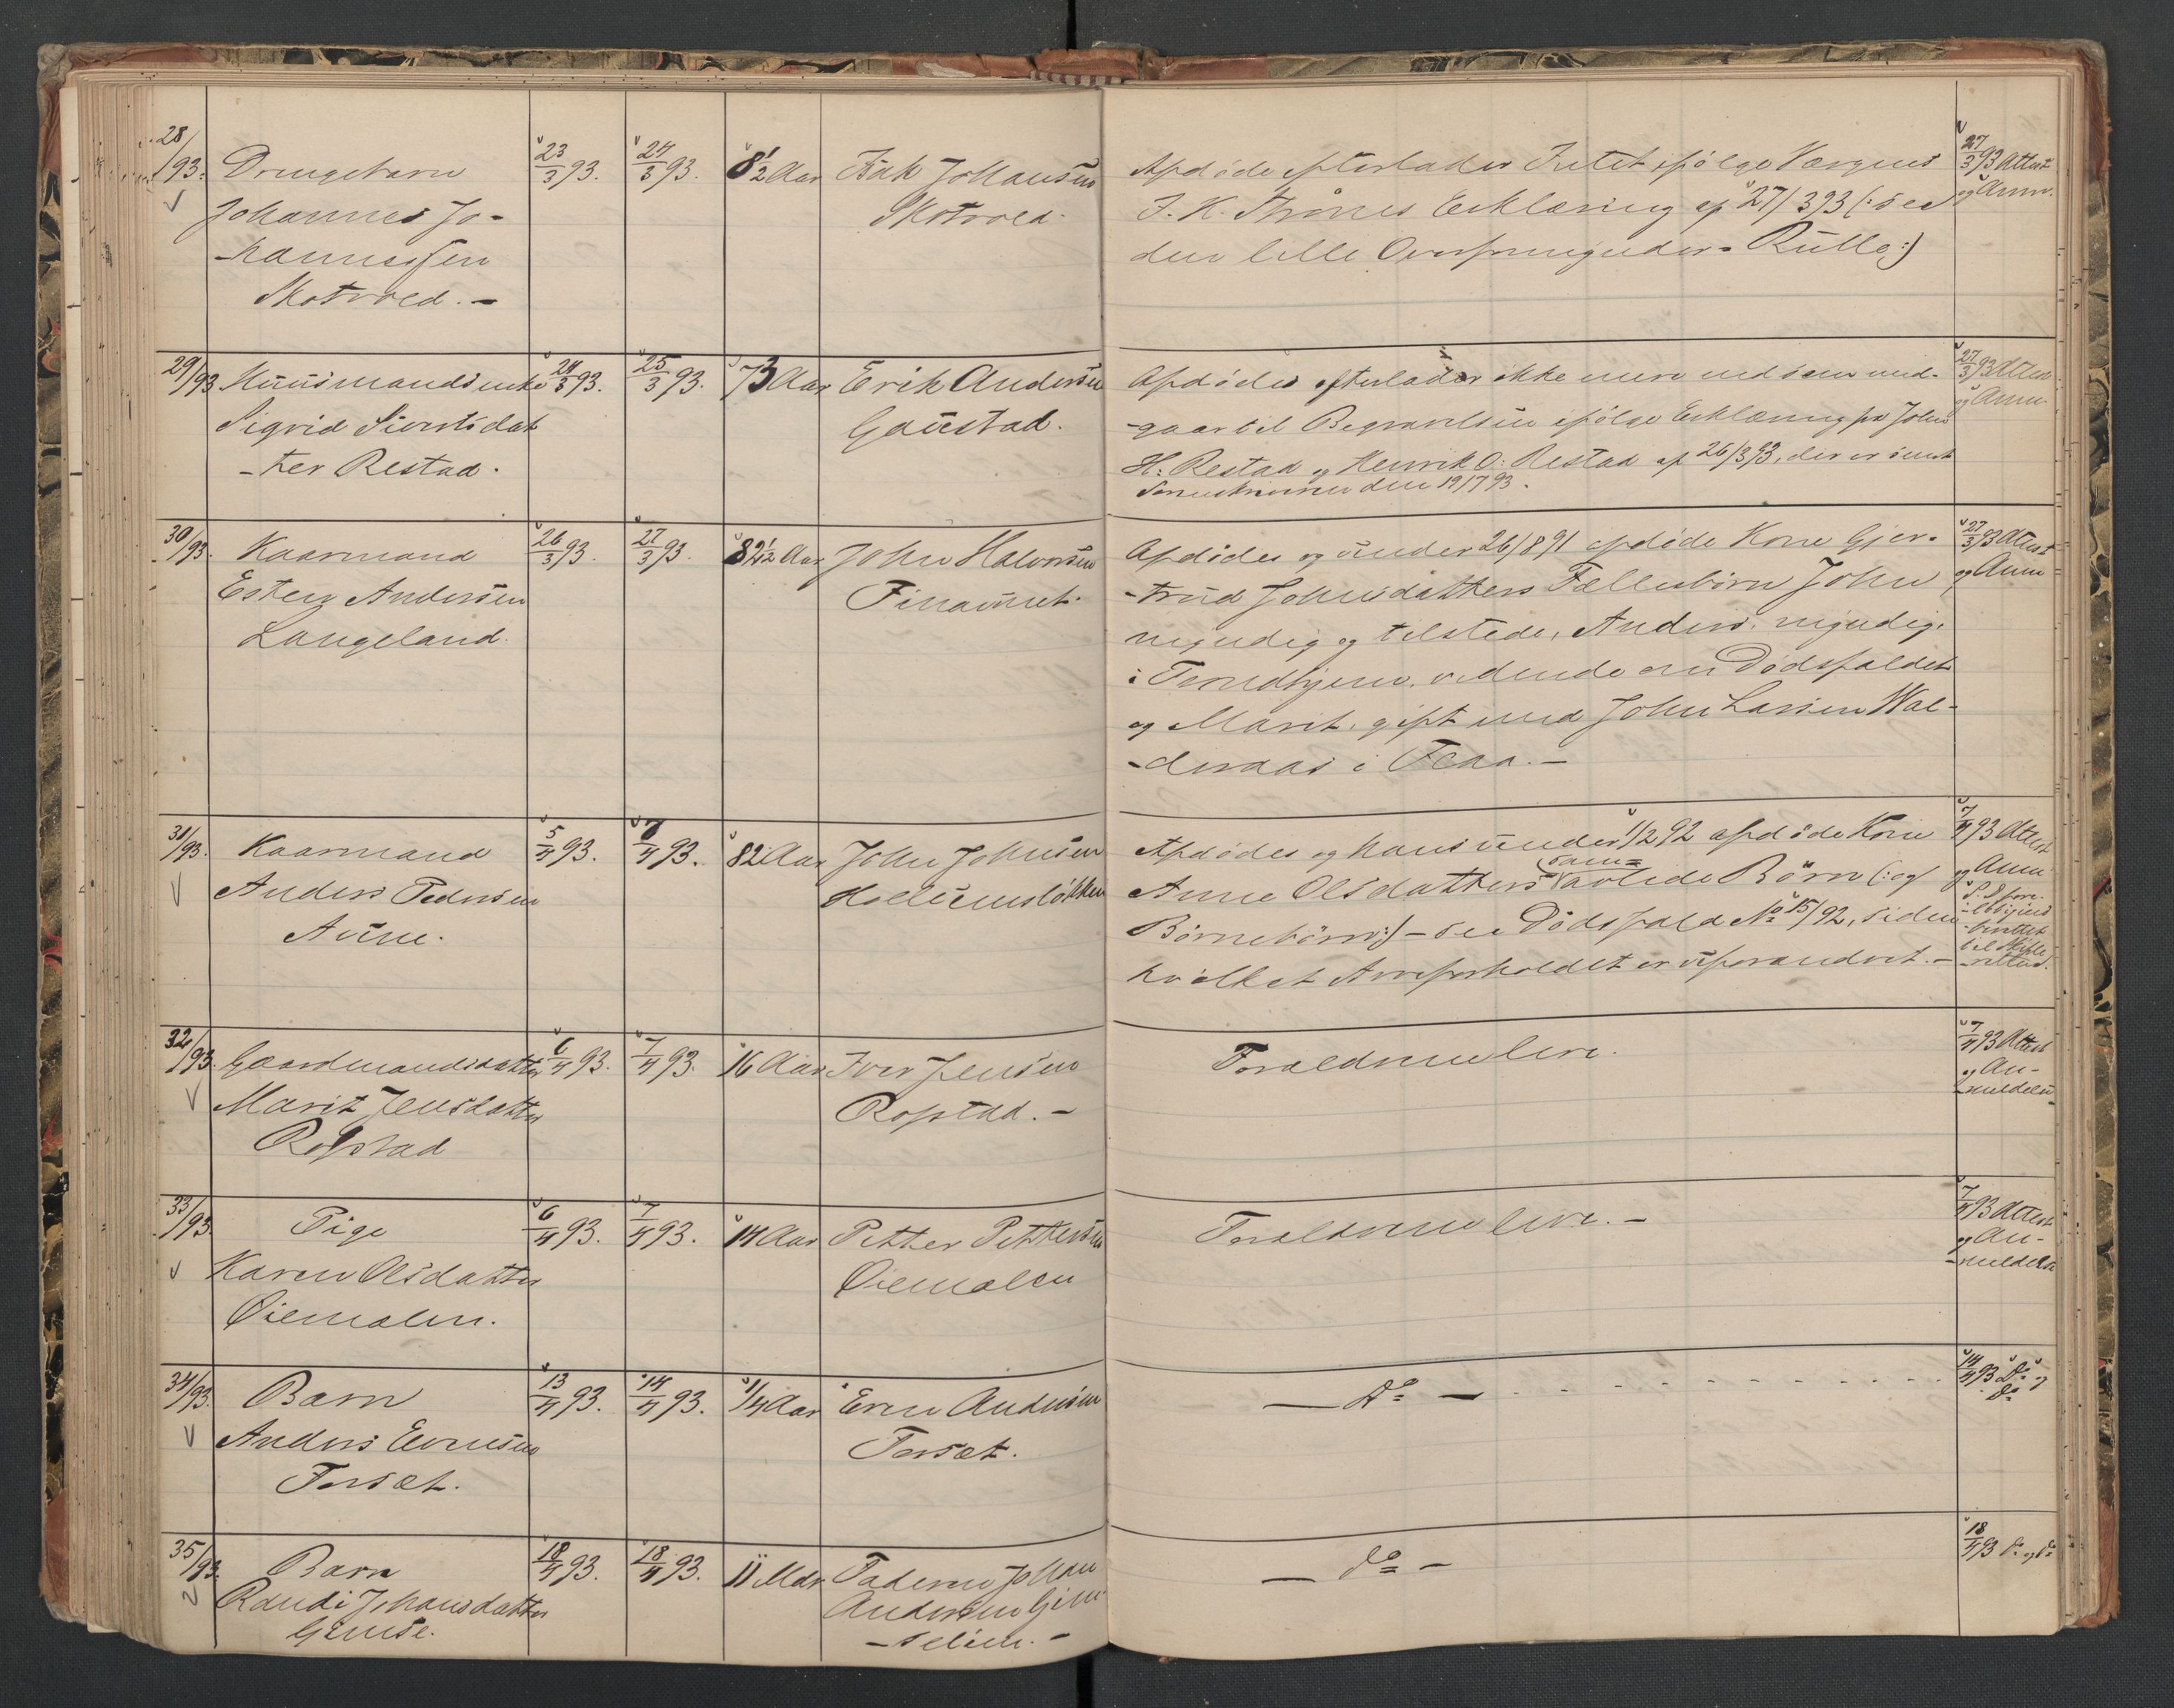 28/93.
Drengebarn
Johannes Jo-
-hannessen
Skotvold.-
23/3 93.
24/3 93.
8 1/2 Aar
Isak Johansen
Skotvold.
Afdøde efterlader Intet ifølge Værgens
J. K. Thrönes Erklæring af 27/3 93 (: see
den lille Overspringuder- Rulle:)
27/3 93 Attest
og Anm.
29/93
Huusmandsenke
Sigrid Sivertsdat
-ter Restad.
24/3 93.
25/3 93.
73 Aar
Erik Andersen
Gaustad.
Afdødes efterlader ikke mere end som med-
-gaar til Begravelsen ifølge Erklæring fra John
H. Restad og Henrik O. Restad af 26/3 93, der er sendt
Sorenskriveren den 19/7 93.
27/3 93 Attest
og Anm.
30/93.
Kaarmand
Esten Andersen
Langeland.
26/3 93.
27/3 93.
82 1/2 Aar
John Halvorsen
Finamet.
Afdødes og under 26/8 91 afdøde Kone Gjer-
-trud Johnsdatters Fællesbörn John,
myndig og tilstede, Anders, myndig,
i Trondhjem, vidende om Dödsfaldet
og Marit, gift med John Larsen Wal-
-deraas i Flaa.-
27/3 93 Attest
og Anm
31/93.
Kaarmand
Anders Pedersen
Aune.
5/4 93.
7/4 93.
82 Aar
John Johnsen
Hollumsløkken
Afdødes og hans under 1/2 92 afdøde Kone
Anne Olsdatters sam=
avlede Börn (: og
Börnebörn:) - see Dödsfald No 15/92, siden
hvilket Arveforholdet er uforandret.-
7/4 93 Attest
og Anm
32/93.
Gaardmandsdatter
Marit Jensdatter
Rofstad
6/4 93.
7/4 93.
16 Aar
Iver Jensen
Rofstad.-
Forældrene leve.
7/4 93 Attest
og An-
-meldelse
33/93.
Pige
Karen Olsdatter
Øiemalen.
6/4 93.
7/4 93.
14 Aar
Petter Pettersen
Øiemalen
Forældrene leve.-
7/4 93 Attest
og An-
-meldelse
34/93.
Barn
Anders Evensen
Forsæt.
13/4 93.
14/4 93.
1/4 Aar
Even Andersen
Forsæt.
— Do —
14/4 93 Do og
Do
35/93.
Barn
Randi Johansdatter
Gimse.
18/4 93.
18/4 93.
11 Mdr
Faderen Johan
Andersen Gim-
-selien.-
— do —
18/4 93 do og do